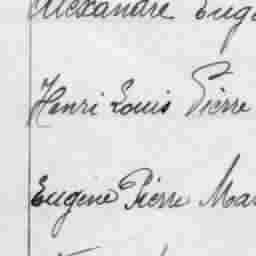 Alexandre Eug
Henri Louis Pierre
Eugène Pierre Mar